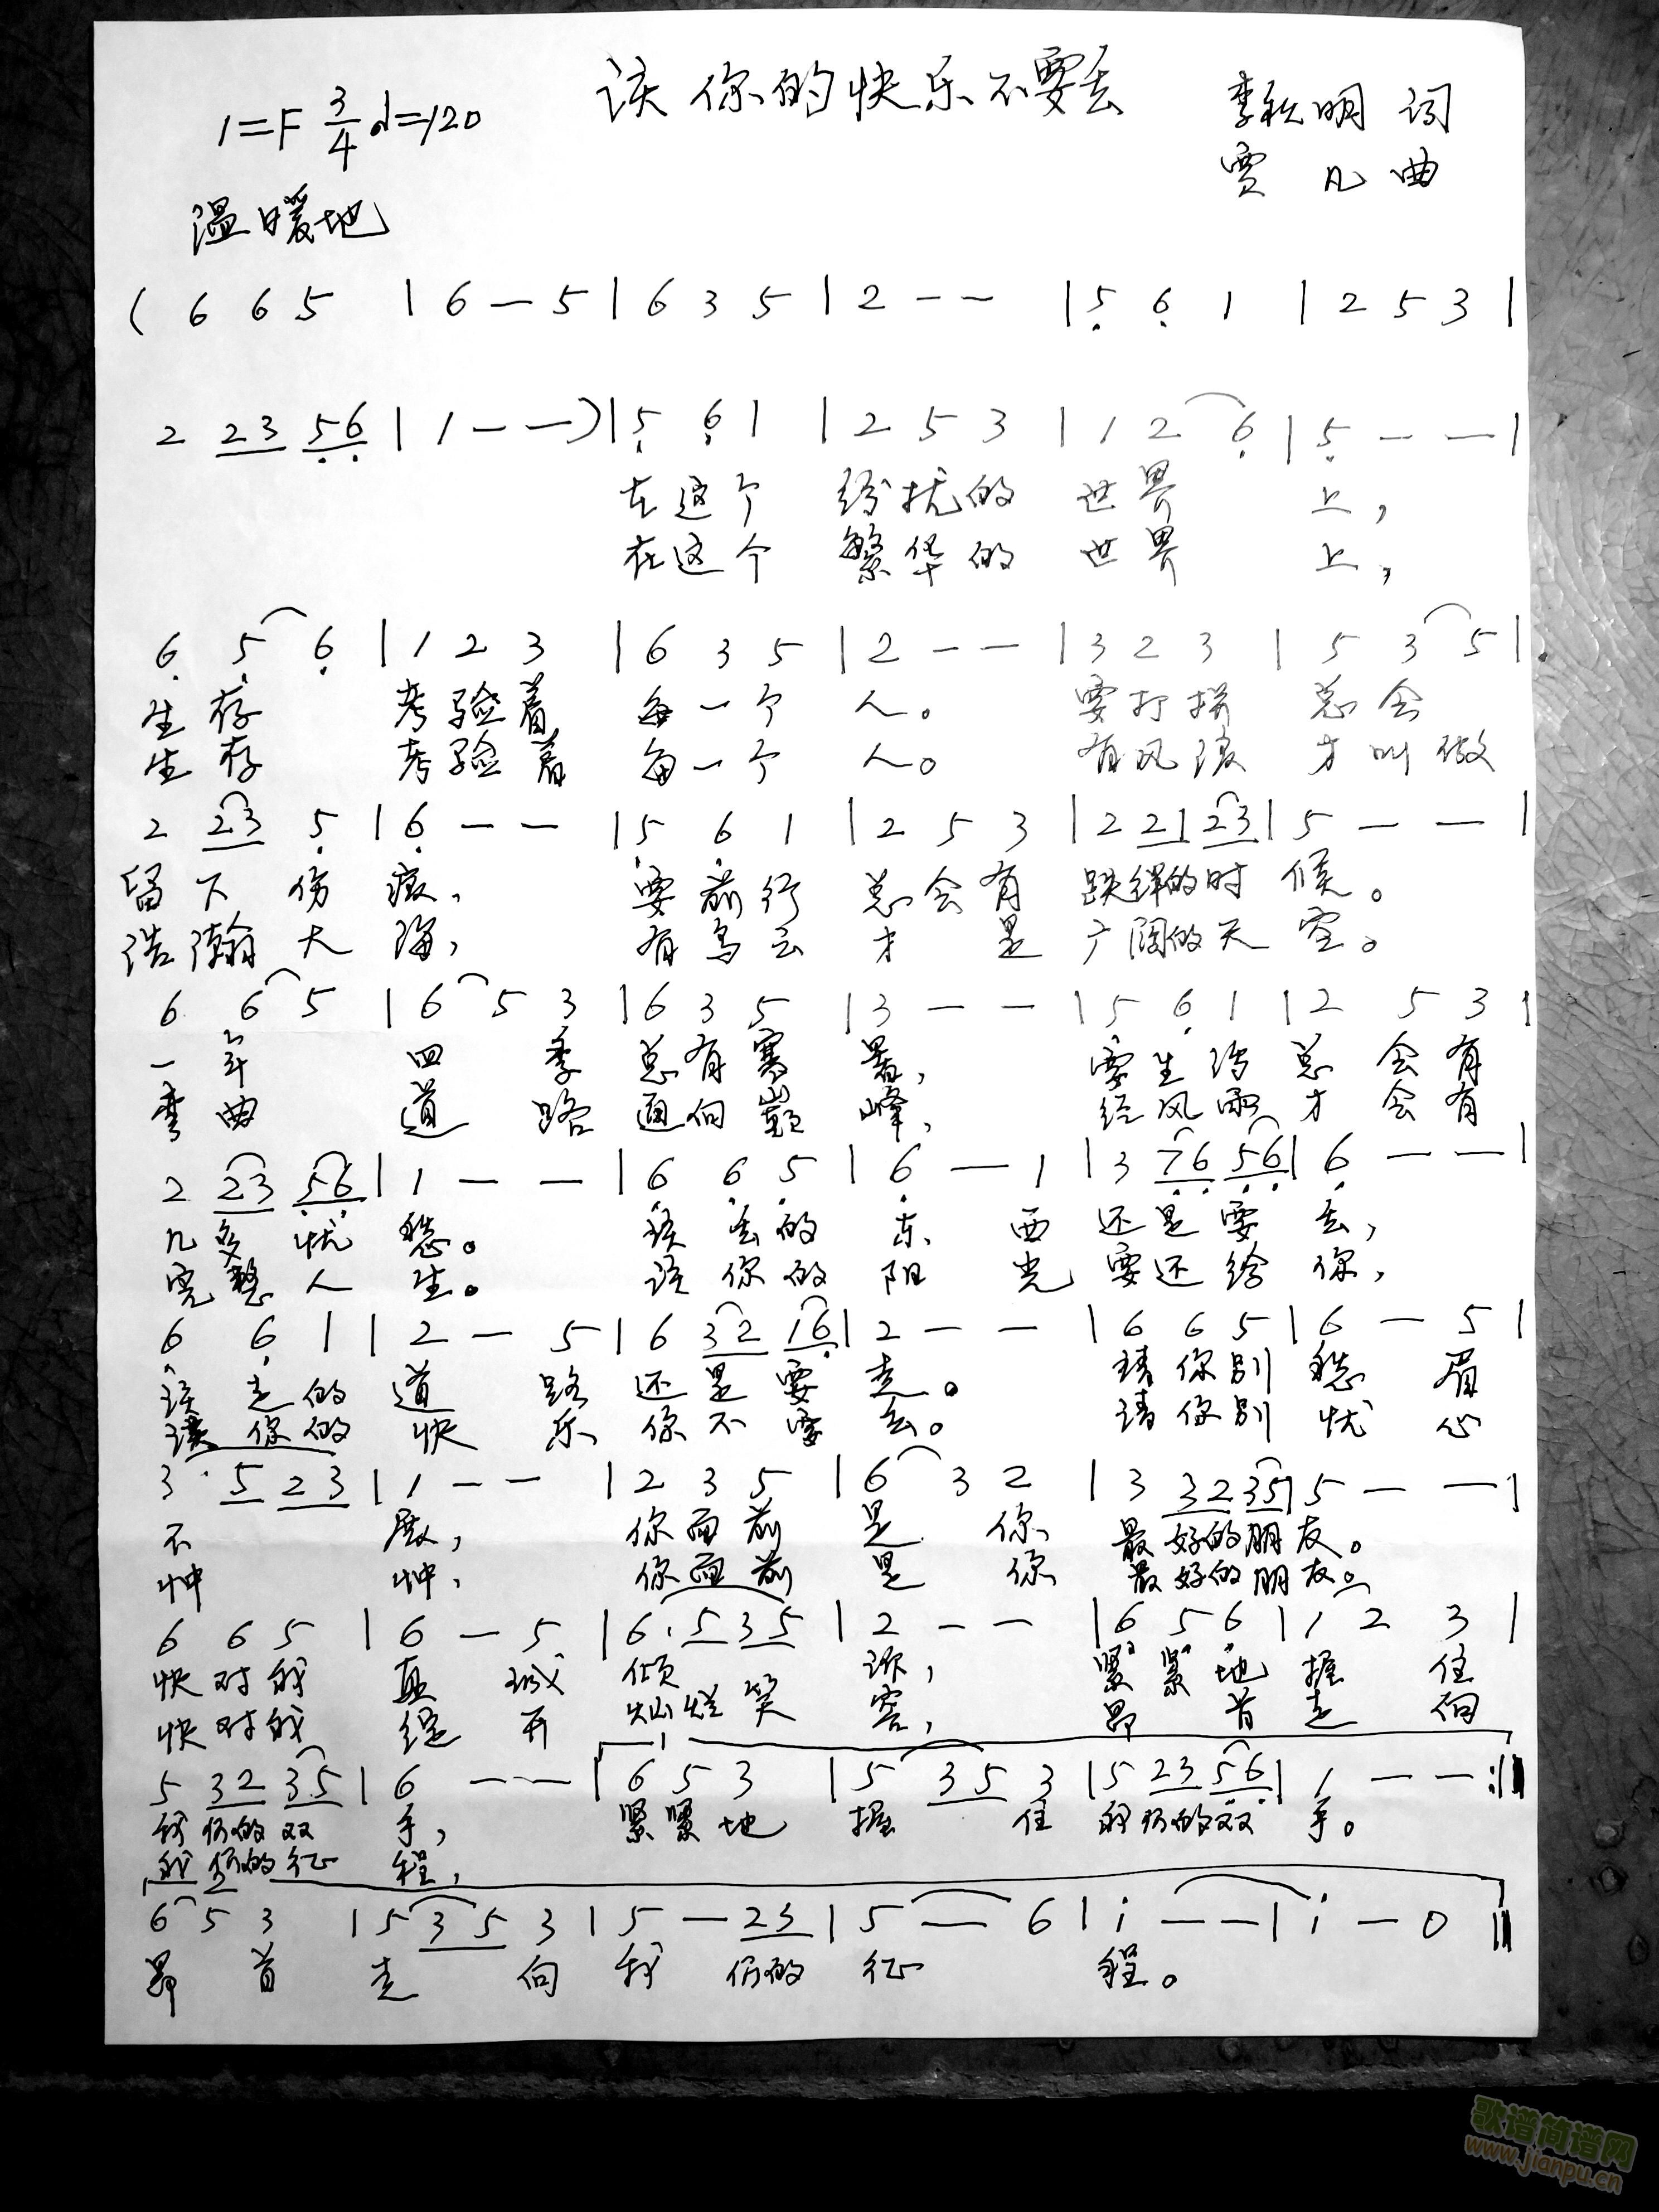 该你的快乐不要丢
1=F 3/4 ♩=120
李秋明 词
贾凡 曲
温暖地
( 6 6 5 | 6 — 5 | 6 3 5 | 2 — — | 5̣ 6̣ 1 | 2 5 3 |
2 23 5̣6̣ | 1 — — ) | 5̣ 6̣ 1 | 2 5 3 | 1 2 6̣ | 5̣ — — |
在这个 纷扰的 世界 上，
在这个 繁华的 世界 上，
6̣ 5̣ 6̣ | 1 2 3 | 6 3 5 | 2 — — | 3 2 3 | 5 3 5 |
生存 考验着 每一个 人。 要打拼 总会
生存 考验着 每一个 人。 有风浪 才叫做
2 23 5̣ | 6̣ — — | 5̣ 6̣ 1 | 2 5 3 | 2 21 23 | 5 — — |
留下伤痕， 要前行 总会有 跌绊的时候。
浩瀚大海， 有乌云 才是 广阔的天空。
6 6 5 | 6 5 3 | 6 3 5 | 3 — — | 5̣ 6̣ 1 | 2 5 3 |
一年 四季 总有寒暑， 要生活 总会有
弯曲 道路 通向巅峰， 经风雨 才会有
2 23 5̣6̣ | 1 — — | 6̣ 6̣ 5̣ | 6̣ — 1 | 3 7̣6̣ 5̣6̣ | 6̣ — — |
几多忧愁。 该丢的 东西 还是要丢，
完整人生。 该你的 阳光 要还给你，
6̣ 6̣ 1 | 2 — 5 | 6 32 16̣ | 2 — — | 6 6 5 | 6 — 5 |
该走的 道路 还是要走。 请你别愁眉
该你的 快乐 你不要丢。 请你别忧心
3· 5 23 | 1 — — | 2 3 5 | 6 3 2 | 3 32 35 | 5 — — |
不展， 你面前 是你 最好的朋友。
忡忡， 你面前 是你 最好的朋友。
6 6 5 | 6 — 5 | 6· 5 35 | 2 — — | 6̣ 5̣ 6̣ | 1 2 3 |
快对我 真诚 倾诉， 紧紧地 握住
快对我 绽开 灿烂笑容， 昂首走向
5 32 35 | 6 — — | 6 5 3 | 5 35 3 | 5 23 5̣6̣ | 1 — — :‖
我们的双手， 紧紧地 握住 我们的双手。
我们的征程，
6 5 3 | 5 35 3 | 5 — 23 | 5 — 6 | i — — | i — 0 ‖
昂首走向我们的征程。
歌谱简谱网
www.jianpu.cn